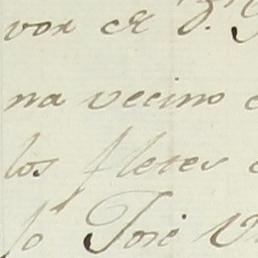 vor de D.
na vecino
los fletes
José